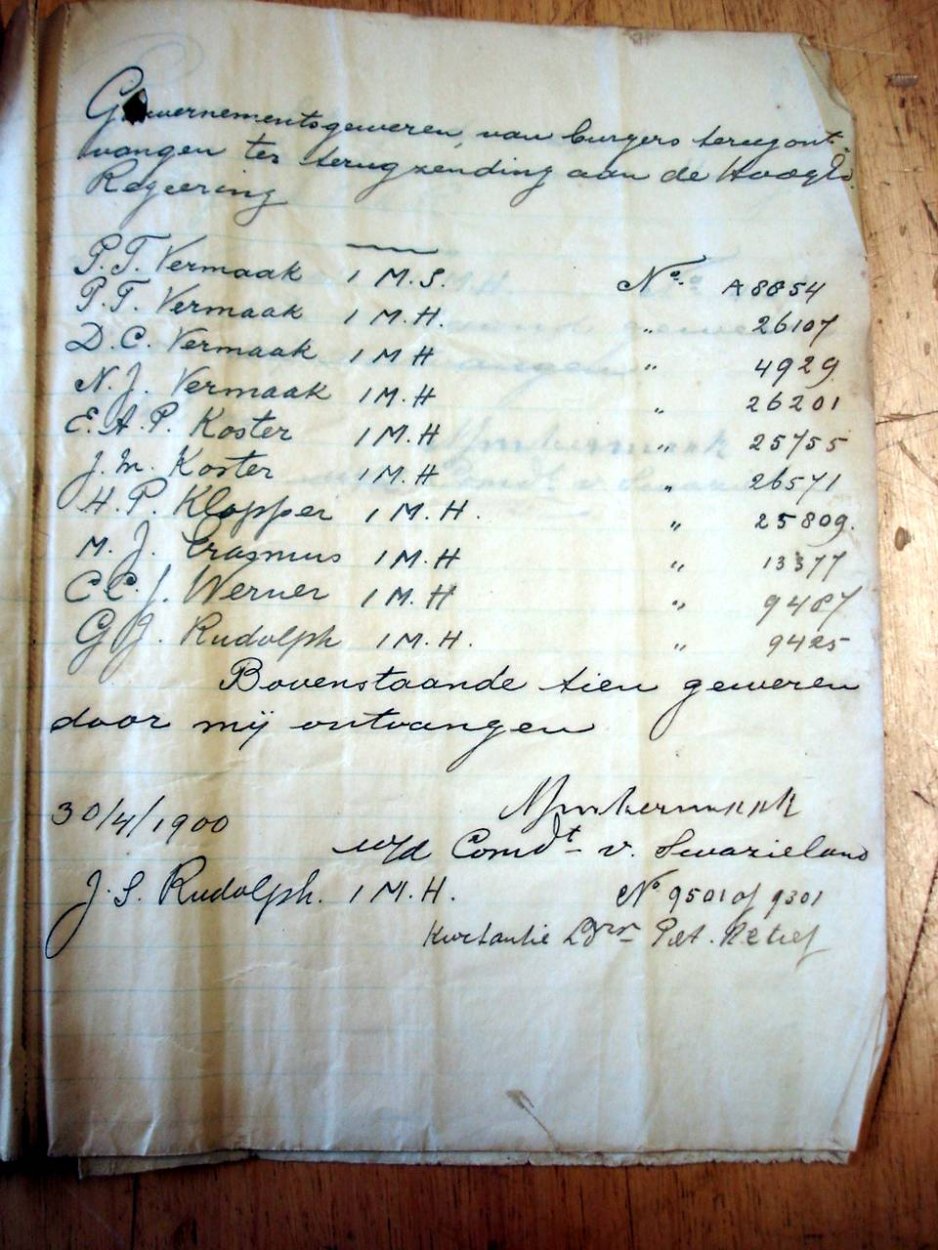 Gouvernementsgeweren, van burgers terug ont-
vangen ter terugzending aan de HoogEd
Regeering
P. T. Vermaak 1 M.S. No. A8854
P. T. Vermaak 1 M.H. " 26107
D. C. Vermaak 1 M H " 4929
N. J. Vermaak 1 M.H " 26201
E. A. P. Koster 1 M.H " 25755
J. M. Koster 1 M.H " 26571
H. P. Klopper 1 M.H. " 25809.
M. J. Erasmus 1 M.H " 13377
C. C. J. Werner 1 M.H " 9487
G J. Rudolph 1 M.H. " 9425
Bovenstaande tien geweren
door mij ontvangen
30/4/1900
w/d Comdt v. Swazieland
J. S. Rudolph. 1 M.H. No 9501 of 9301
Kwitantie Piet. Retief